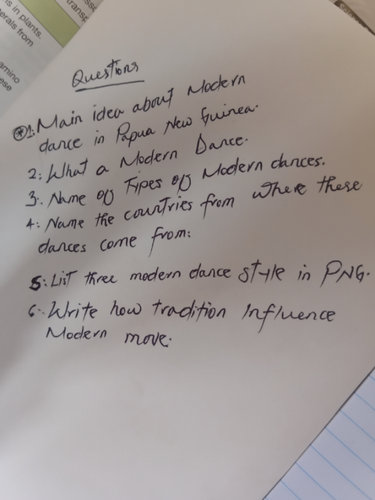 s in plants.
erals from
amino
ese
transp
Questions
1: Main idea about Modern
dance in Papua New Guinea.
2: What a Modern Dance.
3: Name of Types of Modern dances.
4: Name the countries from where these
dances come from:
5: List three modern dance style in PNG.
6: Write how tradition Influence
Modern move.